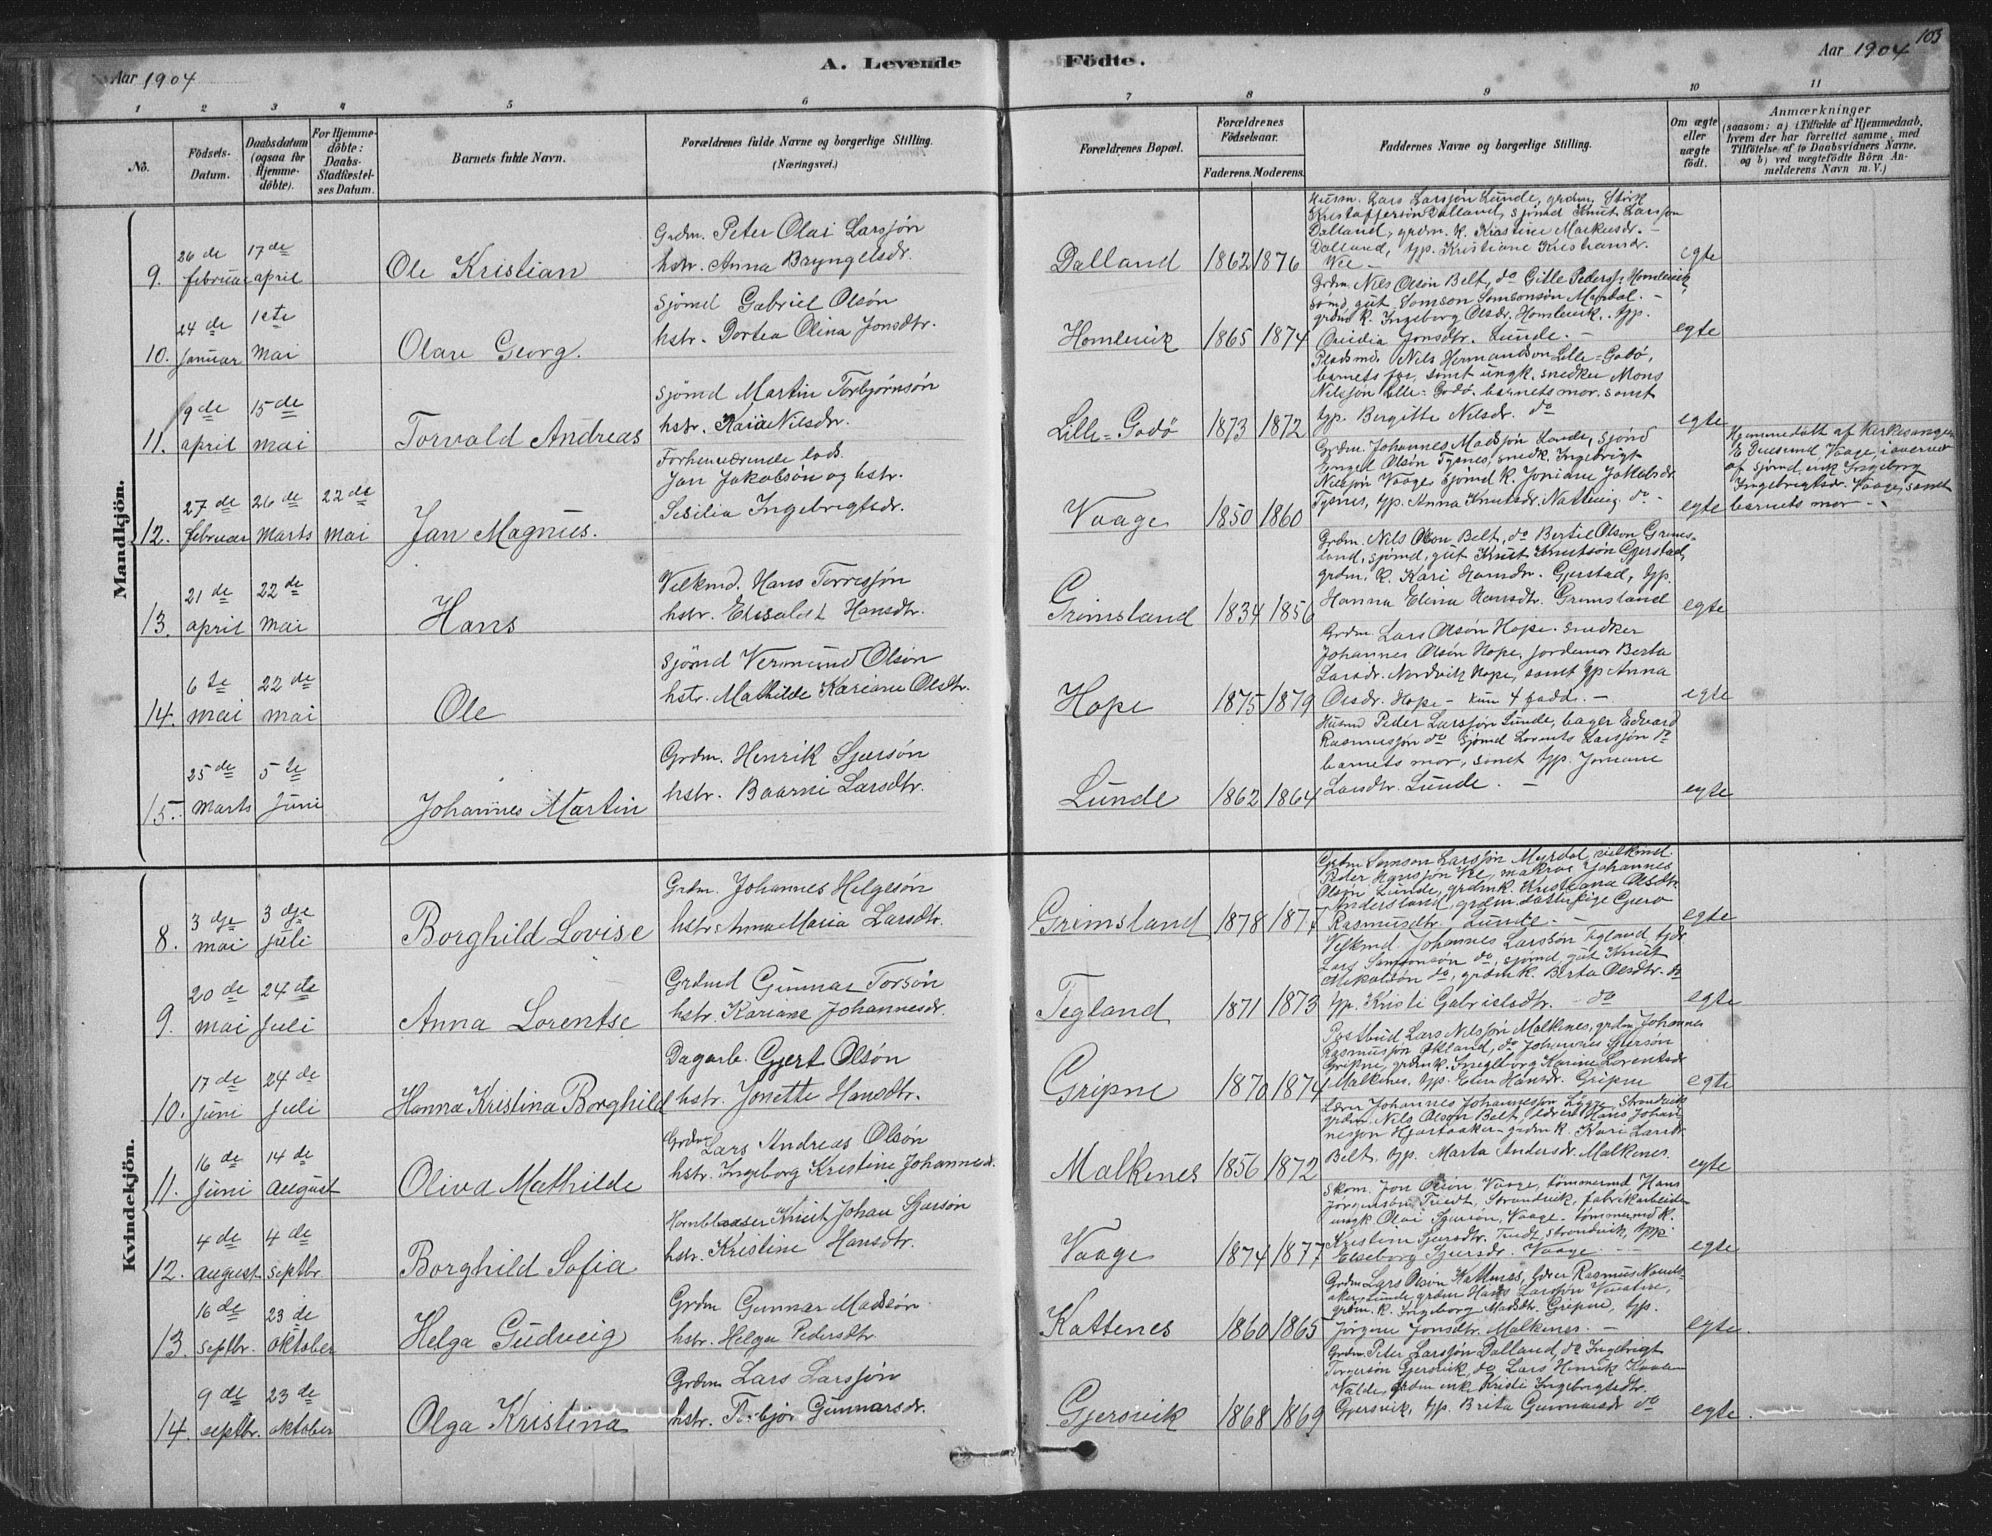 Aar 1904
A. Levende
Födte.
Aar 1904
103
1 2 3 4 5 6 7 8 9 10 11
No.
Födsels-
Datum.
Daabsdatum
(ogsaa for
Hjemme-
döbte).
For Hjemme-
döbte:
Daabs-
Stadfæstel-
ses Datum.
Barnets fulde Navn.
Forældrenes fulde Navne og borgerlige Stilling.
(Næringsvei.)
Forældrenes Bopæl.
Forældrenes
Födselsaar.
Faderens. Moderens.
Faddernes Navne og borgerlige Stilling.
Om ægte
eller
uægte
födt.
Anmærkninger
(saasom: a) i Tilfælde af Hjemmedaab,
hvem der har forrettet samme, med
Tilföielse af to Daabsvidners Navne.
og b) ved uegtefödte Börn An-
melderens Navn m. V.)
Mandkjön.
9. 26de februar 17de april
Ole Kristian
Grdm. Peter Olai Larsjøn
hstr. Anna Bryngelsdr.
Dalland 1862 1876
Husm. Lars Larsjøn Lunde, grdm.
Kristaffersøn Dalland, sjømd Knut Larsjøn
Dalland, grdm. k. Kristine Markusdr. -
Dalland, typ. Kristiane Kristiansdr.
egte
10. 24de januar 1ste mai
Olav Georg.
Sjømd Gabriel Olsøn
hstr. Dortea Olina Jonsdtr.
Homlevik 1865 1874
Grdm. Nils Olsøn Belt, do Gitle Peders. Homlevik,
sømd gut Samson Samsonsøn Myrdal. -
grdm k. Ingeborg Olsdr. Homlevik. typ.
Jonsdtr. Lunde. -
egte
11. 9de april 15de mai
Torvald Andreas
Sjømd Martin Torbjørnsøn
hstr. Kaia Nilsdr.
Lille-Godø 1873 1872
Pladsmd. Nils Hermandson Lille-Godø,
barnets far, samt ungk. snedker Mons
Nilsjøn Lille-Godø. barnets mor. samt
typ. Bergitte Nilsdr. do
egte
12. 27de februar 26de Marts 22de mai
Jan Magnus.
Forhenværende lods.
Jan Jakobsøn og hstr.
Sesilia Ingebrigtsdr.
Vaage 1850 1860
Grdm. Johannes Madsjøn Lunde, sjømd
Engel Olsøn Tysnes, snedk. Ingebrigt
Nilsjøn Vaage, sjømd k. Joniane Jakobsdr.
Tysnes, typ. Anna Knutsdr. Nattvig do -
egte
Hjemmedøbt af Kirkesanger
Vaage, i nærvær
af sjømd. enk Ingeborg
Ingebrigtsdr. Vaage, samt
barnets mor -
13. 21de april 22de mai
Hans
Velkmd. Hans Torresjøn
hstr. Elisabet Hansdtr.
Grimsland 1834 1856
Grdm. Nils Olson Belt, do Bertil Olson Grims-
land, sjømd, gut Knut Knutsøn Gjerstad,
grdm. k. Kari Hansdr. Gjerstad, typ.
Hanna Elina Hansdtr. Grimsland
egte
14. 6te mai 22de mai
Ole
Sjømd Vermund Olsøn
hstr. Mathilde Kariane Olsdtr.
Hope 1875 1879
Grdm. Lars Olsøn Hope. snedker
Johannes Olsøn Hope, jordemor Berta
Larsdr. Nordvik Hope, samt typ Anna
Olsdr. Hope - kun 4 fadd. -
egte
15. 25de marts 5te juni
Johannes Martin
Grdm. Henrik Sjursøn
hstr. Baarni Larsdtr.
Lunde 1862 1864
Husmd Peder Larsjøn Lunde, bager Edvard
Rasmusjøn do sjømd Lorents Larsjøn do
barnets mor, samt typ. Joniane
Larsdtr. Lunde. -
egte
Kvindekjön.
8. 3dje mai 3dje juli
Borghild Lovise
Grdm. Johannes Helgesøn
hstr. Anna Maria Larsdtr.
Grimsland 1878 1877
Grdm Samson Larsjøn Myrdal, velkmd.
Peder Hansjøn Vee, Johannes
Olsøn Lunde, grdm k. Kristiana Olsdtr.
Rasmusdtr. Lunde. -
egte
9. 20de mai 24de Juli
Anna Lorentse
Grdmd Gunnar Torsøn
hstr. Kariane Johannesdr.
Tegland 1871 1873
Velkmd. Johannes Larssøn Tegland, tjdr
Lars Samsonsøn do, sjømd, gut Knut
Mikalsøn do, grdm k. Berta Olsdtr. do
typ. Kristi Gabrielsdtr. - do
egte
10. 17de juni 24de juli
Hanna Kristina Borghild
Dagarb. Gjert Olsøn
hstr. Jonette Hansdtr.
Gripne 1870 1874
Postbud Lars Nilsjøn Malkenes, grdm Johannes
Rasmusjøn Økland, do Johannes Sjursøn
Gripne, grdm k. Ingeborg Karine Lorentsdr
Malkenes. typ. Elen Hansdr. Gripne
egte
11. 16de juni 14de august
Oliva Mathilde
Grdm Lars Andreas Olsøn
hstr. Ingeborg Kristine Johannesd.
Malkenes 1856 1872
Lærer Johannes Johannesjøn Lygre Strandvik
grdm. Nils Olson Belt, lærer Hans Johan-
nesjøn Hjartaaker - grdm k. Kari Larsdr
Belt. typ. Marta Andersdr. Malkenes.
egte
12. 4de august 4de septbr.
Borghild Sofia
Hornblaaser Knut Johan Sjursøn
hstr. Kristine Hansdtr.
Vaage 1874 1877
Skom. Jon Olsøn Vaage, tømmermd Hans
Jørgensøn Tuedt, Strandvik, fabrikarbeider
ungk Olai Sjursøn, Vaage. tømmermd k.
Kristine Sjursdtr. Tuedt Strandvik, typ.
Elseborg Sjursdr. Vaage. - -
egte
13. 16de septbr. 23de oktober
Helga Gudveig
Grdm Gunnar Madsøn
hstr. Helga Pedersdtr.
Kattenes 1860 1865
Grdm Lars Olsøn Kattenes, lærer Rasmus
Lunde, grdm Hans Larsson
grdm. k. Ingeborg Madsdtr. Gripne, typ.
Jørgine Jonsdtr. Malkenes. -
egte.
14. 9de septbr. 23de oktober
Olga Kristina
Grdm Lars Larsjøn
hstr. Torbjør Gunnarsdr.
Gjersvik 1868 1869
Grdm. Peter Larsjøn Dalland, do Ingebrigt
Torgersøn Gjersvik, do Lars Henrik
Valde, grdm enk Kristi Ingebrigtsdtr.
Gjersvik, typ. Brita Gunnarsdr do
egte.